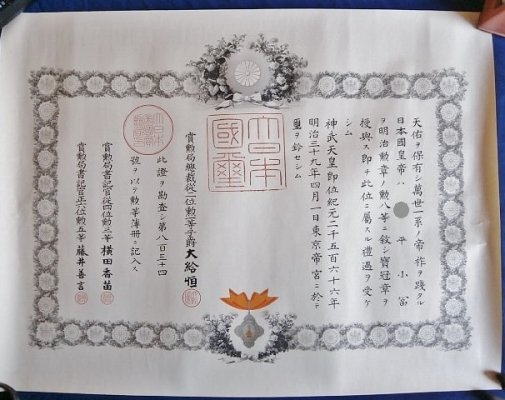 天佑ヲ保有シ萬世一系ノ帝祚ヲ踐タル
日本國皇帝ハ 平小冨
ヲ明治勲章ノ勲八等ニ敍シ寶冠章ヲ
授與ス即チ此位ニ屬スル禮遇ヲ受ケ
シム
神武天皇即位紀元二千五百六十六年
明治三十九年四月一日東京帝宮ニ於テ
璽ヲ鈐セシム
大日本
國璽
賞勲局總裁從二位勲一等子爵 大給恒
此證ヲ勘査シ第八百三十四
號ヲ以テ勲等簿冊ニ記入ス
賞勲局書記官從四位勲三等 横田香苗
賞勲局書記官正六位勲五等 藤井善言